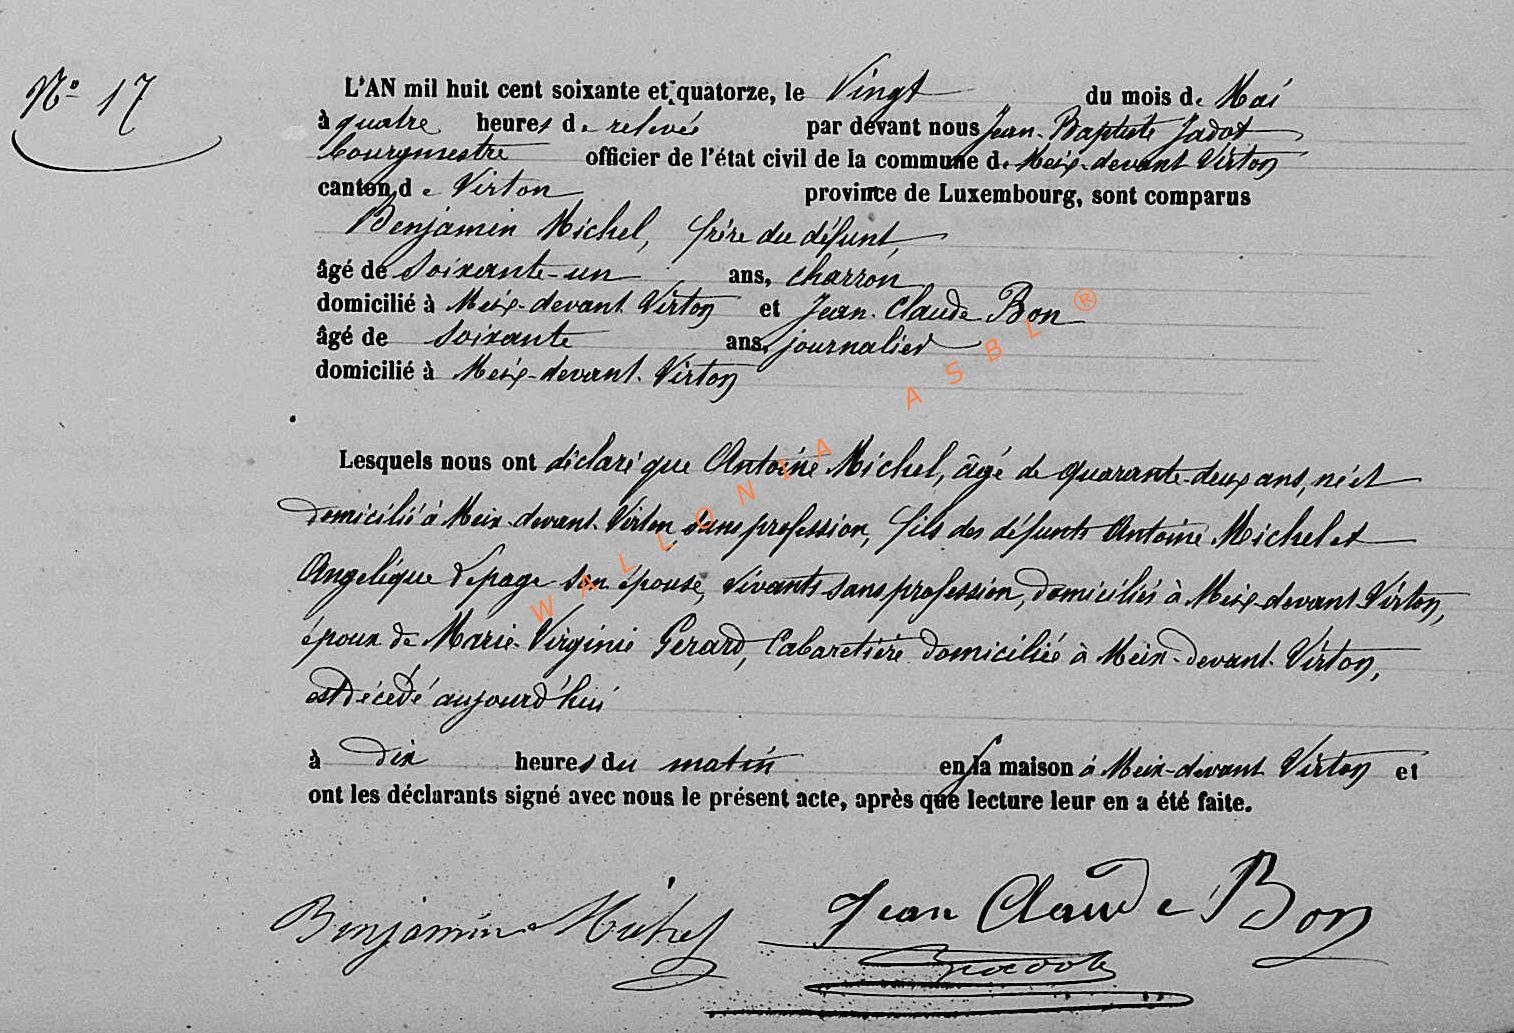 Nº 17
L'AN mil huit cent soixante et quatorze, le Vingt du mois de Mai
à quatre heures de relevée par devant nous Jean-Baptiste Jadot
bourgmestre officier de l'état civil de la commune de Meix-devant Virton
canton de Virton province de Luxembourg, sont comparus
Benjamin Michel, frère du défunt,
âgé de soixante-un ans, charron
domicilié à Meix-devant Virton et Jean-Claude Bon
âgé de soixante ans, journalier
domicilié à Meix-devant-Virton
Lesquels nous ont déclaré que Antoine Michel, âgé de quarante-deux ans, né et
domicilié à Meix-devant-Virton sans profession, fils des défunts Antoine Michel et
Angelique Lepage son épouse, vivants sans profession, domiciliés à Meix-devant-Virton,
époux de Marie-Virginie Gerard, Cabaretière domiciliée à Meix-devant-Virton,
est décédé aujourd'hui
à dix heures du matin en sa maison à Meix-devant Virton et
ont les déclarants signé avec nous le présent acte, après que lecture leur en a été faite.
Benjamin Michel Jean Claude Bon
Jadot
WALLONIA ASBL ®